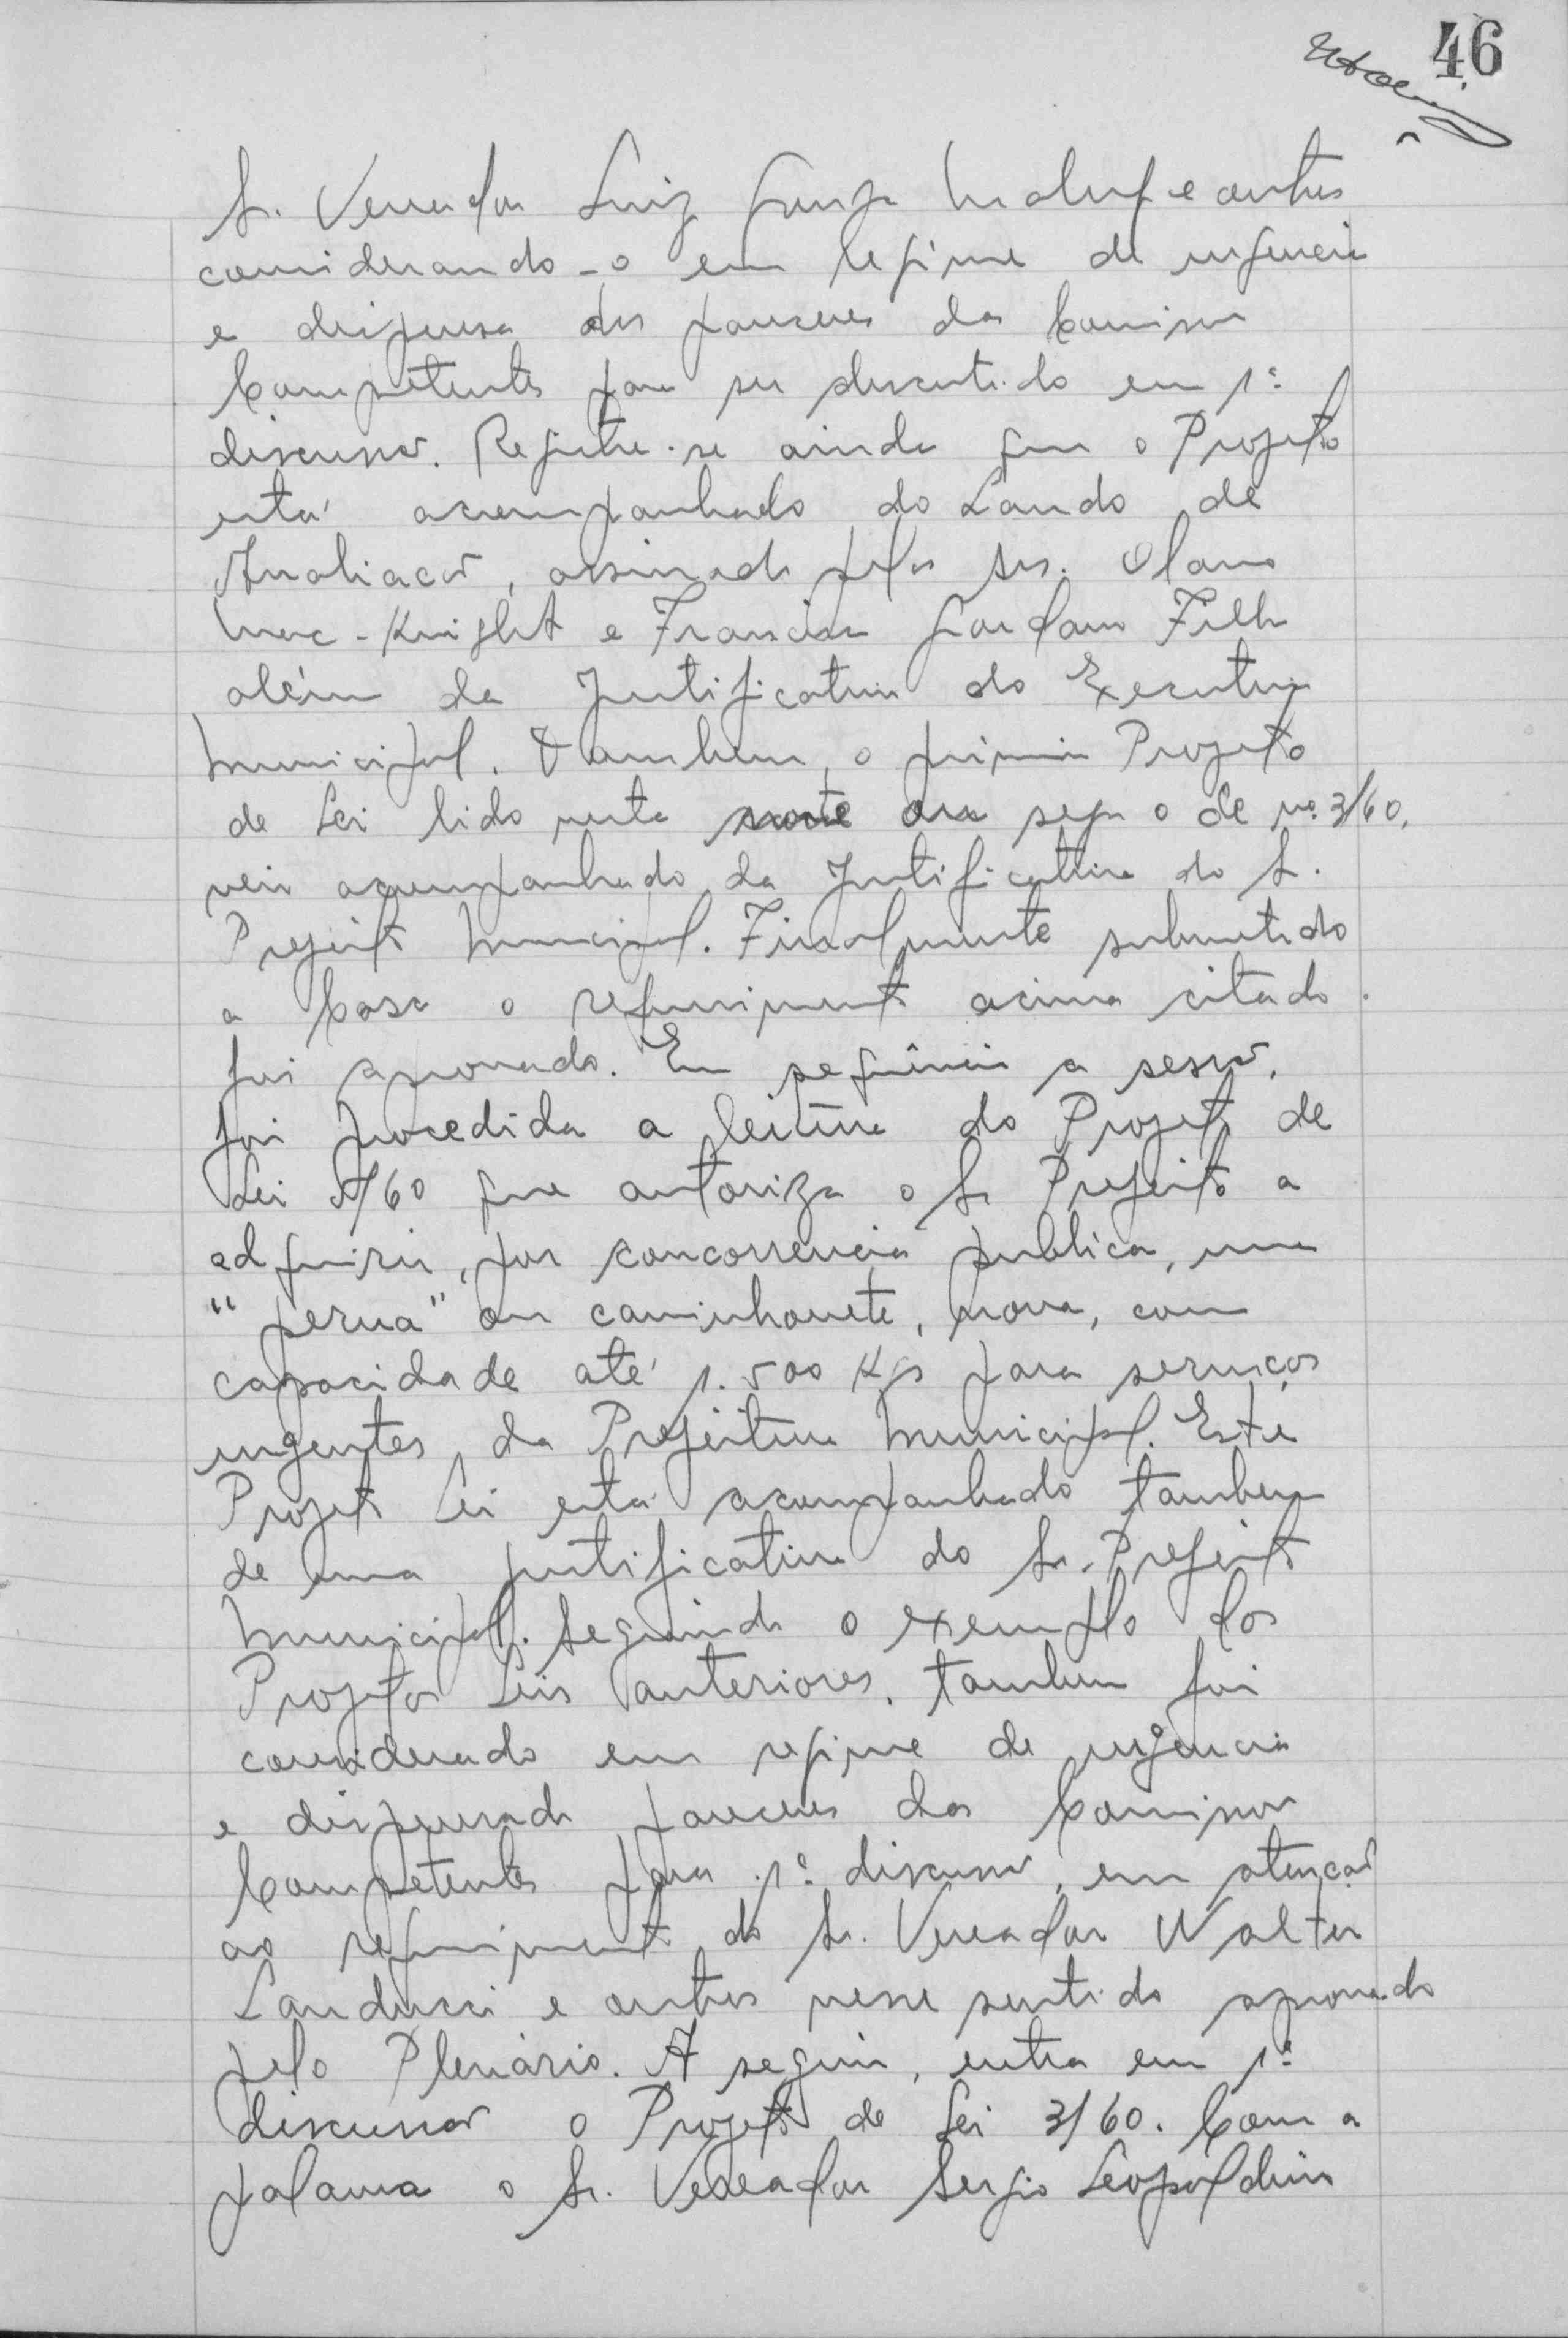 46
Sr. Vereador Luiz Gonzaga Maluf e outros
considerando-o em regime de urgencia
e dispensa dos pareceres da Comissão
Competentes para ser discutido em 1ª
discussão. Registre-se ainda que o Projeto
está acompanhado do Laudo de
Avaliação, assinado pelos Srs. Olavo
Mac-Knight e Francisco Jordam Filho
além da Justificativa do Executivo
Municipal. Tambem, o primeiro Projeto
de Lei lido nesta noite ou seja o de nº 3/60,
veio acompanhado da Justificattiva do Sr.
Prefeito Municipal. Finalmente submetido
a Casa o requerimento acima citado
foi aprovado. Em sequência a sessão,
foi procedida a leitura do Projeto de
Lei /60 que autoriza o Sr Prefeito a
adquirir, por concorrencia publica, uma
"perua" ou caminhonete, nova, com
capacidade até 1.500 Kgs para serviços
urgentes da Prefeitura Municipal. Este
Projeto Lei está acompanhado tambem
de uma justificativa do Sr. Prefeito
Municipal. Seguindo o exemplo dos
Projetos Leis anteriores, tambem foi
considerado em regime de urgencia
e dispensado pareceres das Comissões
Competentes para 1ª discussão, em atenção
ao requerimento do Sr. Vereador Walter
Landucci e outros nesse sentido aprovado
pelo Plenário. A seguir, entra em 1ª
discussão o Projeto de Lei 3/60. Com a
palavra o Sr. Vereador Sergio Leopoldino